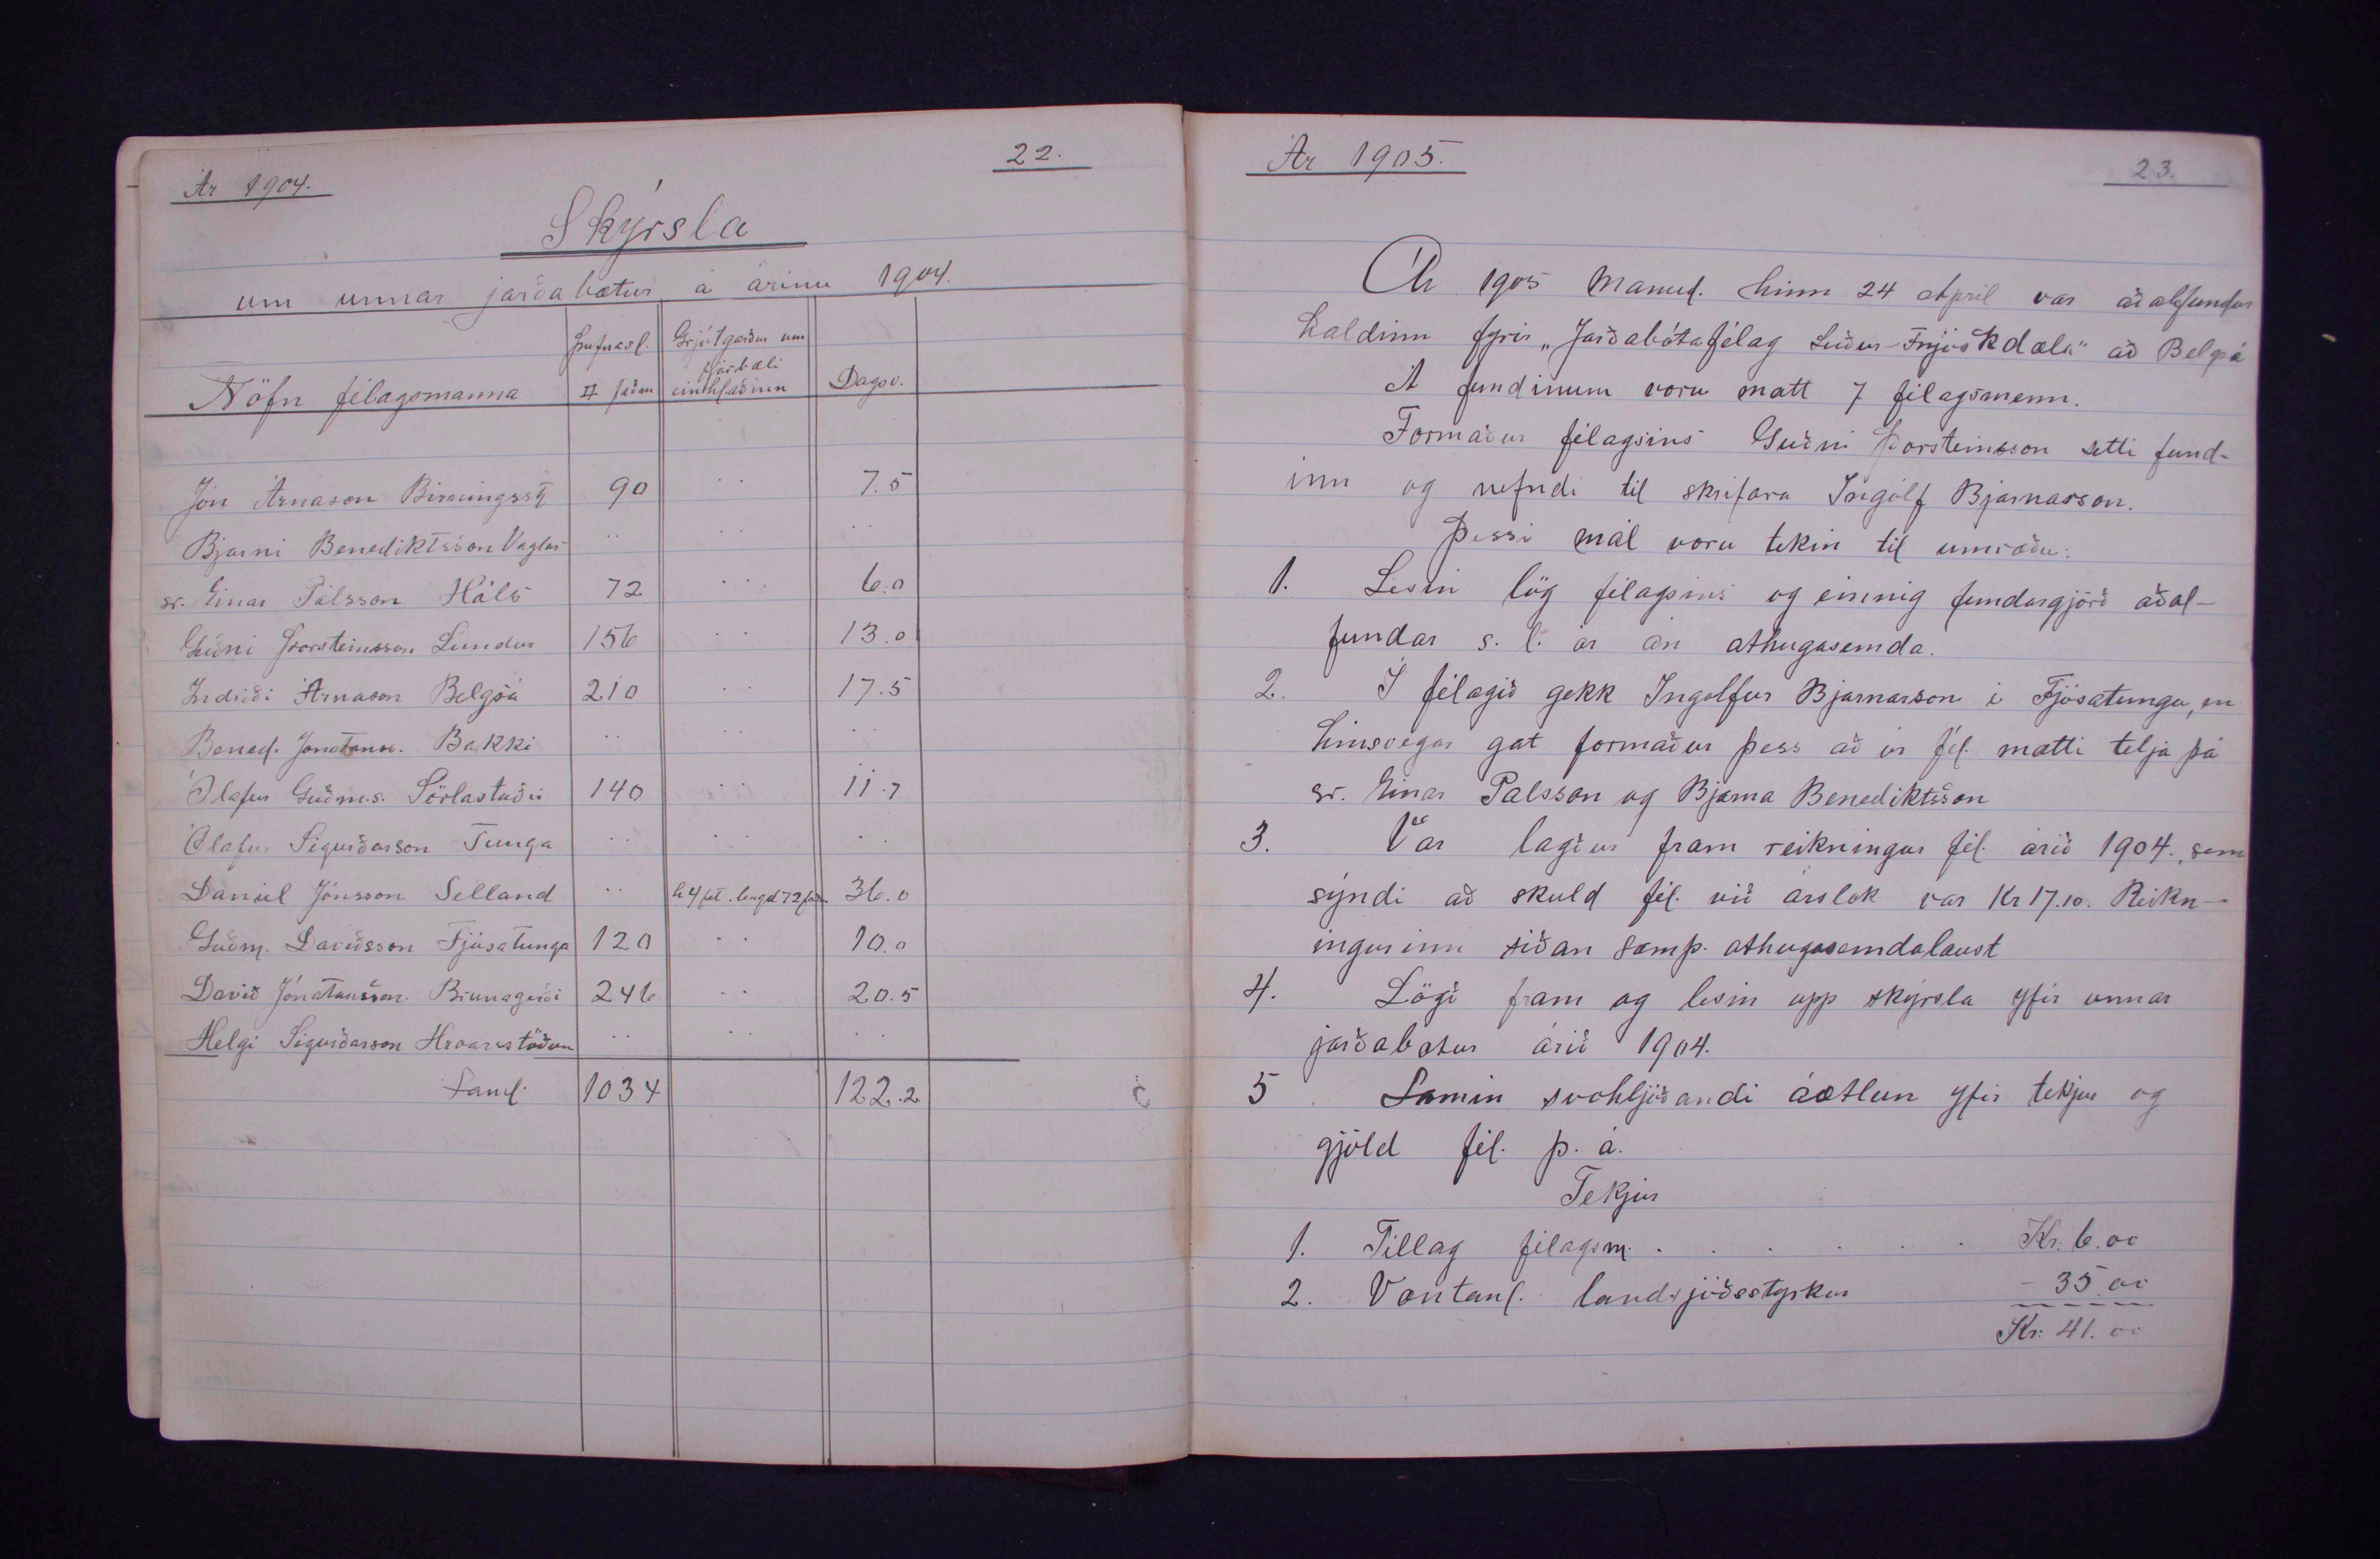 Ár 1904.
22.
Skýrsla
um unnar jarðabætur á árinu 1904.
Nöfn félagsmanna | Þúfnasl. □ faðm | Grjótgarður um fjárbæli einhlaðinn | Dagsv.
Jón Árnason Birningsst | 90 | .. | 7.5
Bjarni Benediktsson Vaglar | .. | .. | ..
sr. Einar Pálsson Háls | 72 | .. | 6.0
Guðni Þorsteinsson Lundur | 156 | .. | 13.0
Indriði Árnason Belgsá | 210 | .. | 17.5
Bened. Jónatanss. Bakki | .. | .. | ..
Ólafur Guðm.s. Sörlastaðir | 140 | .. | 11.7
Ólafur Sigurðarson Tunga | .. | .. | ..
Daníel Jónsson Selland | .. | h 4 fet. lengd 72 fað | 36.0
Guðm. Davíðsson Fjósatunga | 120 | .. | 10.0
Davíð Jónatansson. Brunagerði | 246 | .. | 20.5
Helgi Sigurðarson Hróarsstöðum | .. | .. | ..
Saml. | 1034 | | 122.2
Ár 1905.
23.
Ár 1905 Manud. hinn 24 April var aðalfundur
haldinn fyrir „Jarðabótafélag Suður-Fnjóskdæla" að Belgsá
Á fundinum voru mætt 7 félagsmenn.
Formaður félagsins Guðni Þorsteinsson setti fund-
inn og nefndi til skrifara Ingólf Bjarnarson.
Þessi mál voru tekin til umræðu:
1. Lesin lög félagsins og einnig fundargjörð aðal-
fundar s. l. ár án athugasemda.
2. Í félagið gekk Ingolfur Bjarnarson í Fjósatungu, en
hinsvegar gat formaður þess að úr fél. mætti telja þá
sr. Einar Palsson og Bjarna Benediktsson
3. Var lagður fram reikningur fél. árið 1904., sem
sýndi að skuld fél. við árslok var Kr 17.10. Reikn-
ingurinn síðan samþ. athugasemdalaust
4. Lögð fram og lesin upp skýrsla yfir unnar
jarðabætur árið 1904.
5 Samin svohljóðandi áætlun yfir tekjur og
gjöld fél. þ. á.
Tekjur
1. Tillag félagsm. . . . . . . Kr. 6.00
2. Væntanl. landsjóðsstyrkur - 35.00
Kr: 41.00